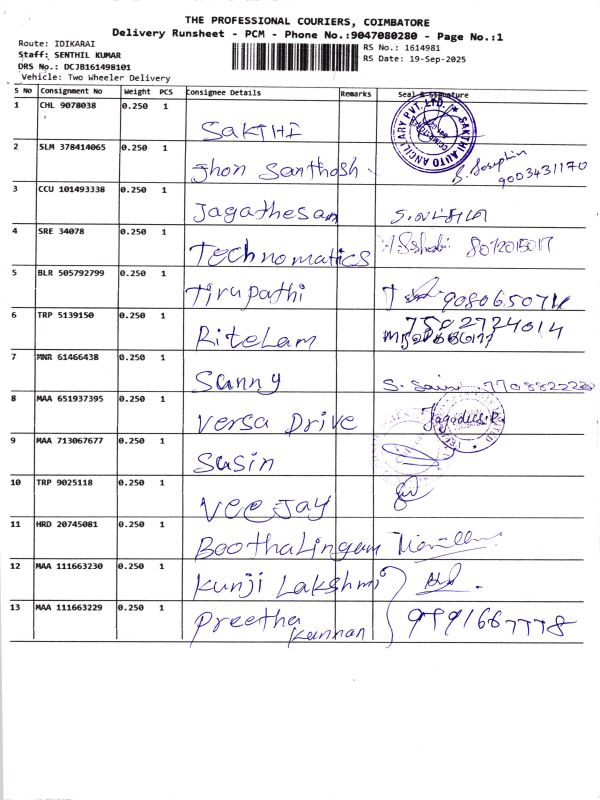 THE PROFESSIONAL COURIERS, COIMBATORE
Delivery Runsheet - PCM - Phone No.:9047080280 - Page No.:1
Route: IDIKARAI
RS No.: 1614981
Staff: SENTHIL KUMAR
RS Date: 19-Sep-2025
DRS No.: DCJB161498101
Vehicle: Two Wheeler Delivery
S No Consignment No Weight PCS Consignee Details Remarks Seal & Signature
1 CHL 9078038 0.250 1 SAKTHI SAKTHI AUTO ANCILLARY PVT. LTD.
2 SLM 378414065 0.250 1 Jhon Santhosh. S. Josephin
9003431170
3 CCU 101493338 0.250 1 Jagathesan
4 SRE 34078 0.250 1 Technomatics
5 BLR 505792799 0.250 1 Tirupathi
6 TRP 5139150 0.250 1 Ritelam 7502724014
7 MNR 61466438 0.250 1 Sanny
8 MAA 651937395 0.250 1 Versa Drive Jagadies.R.
9 MAA 713067677 0.250 1 Susin
10 TRP 9025118 0.250 1 Vee Jay
11 HRD 20745081 0.250 1 Boothalingam
12 MAA 111663230 0.250 1 Kunji Lakshmi
13 MAA 111663229 0.250 1 Preetha
Kannan